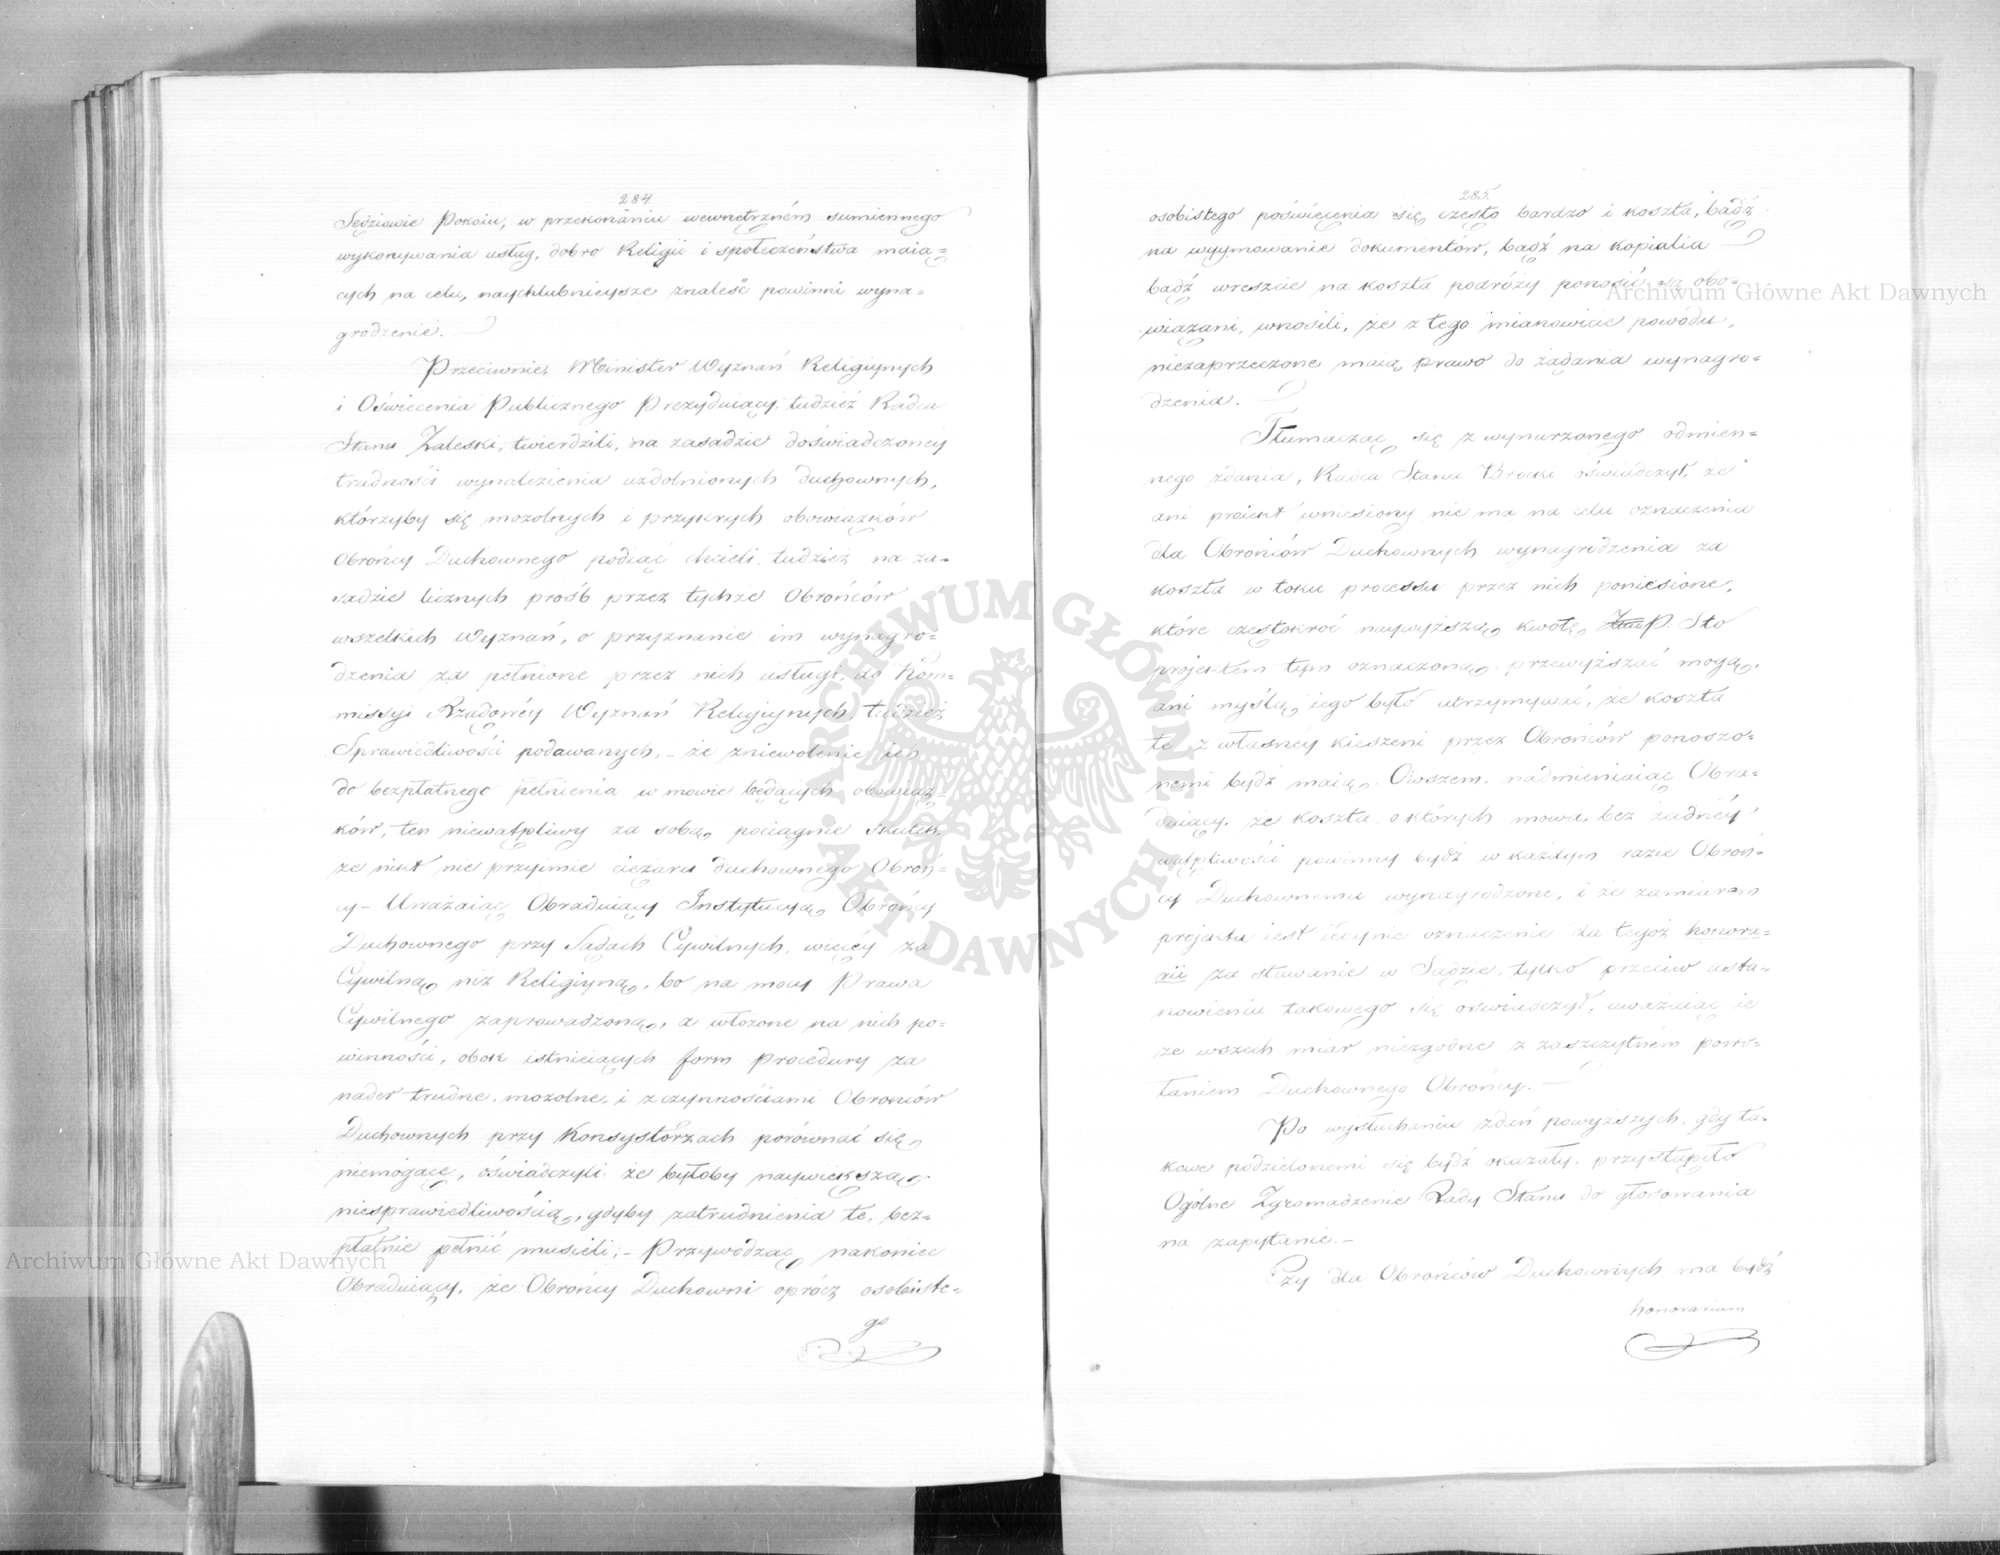 284.
Sędziowie Pokoiu, w przekonaniu wewnętrzném sumiennego
wykonywania usług, dobro Religii i społeczeństwa maią=
cych na celu, naychlubnieysze znaleść powinni wyna=
grodzenie.
Przeciwnie, Minister Wyznań Religiynych
i Oświecenia Publicznego Prezyduiący, tudzież Radca
Stanu Zaleski, twierdzili, na zasadzie doświadczoney
trudności wynalezienia uzdolnionych duchownych,
którzyby się mozolnych i przykrych obowiązków
Obrońcy Duchownego podiąć chcieli, tudzież na za=
sadzie licznych prośb przez tychże Obrońców
wszelkich Wyznań, o przyznanie im wynagro=
dzenia za pełnione przez nich usługi, do Kom=
missyi Rządowéy Wyznań Religiynych, tudzież
Sprawiedliwości podawanych, – że zniewolenie ich
do bezpłatnego pełnienia w mowie będących obowiąz=
ków, ten niewątpliwy za sobą pociągnie skutek,
że nikt nie przyimie ciężaru duchownego Obroń=
cy – Uważaiąc Obraduiący Instytucyą Obrońcy
Duchownego przy Sądach Cywilnych, więcéy za
Cywilną niż Religiyną, bo na mocy Prawa
Cywilnego zaprowadzoną, a włożone na nich po=
winności, obok istnieiących form Procedury za
nader trudne, mozolne, i z czynnościami Obrońców
Duchownych przy Konsystorzach porównać się
niemogące, oświadczyli że byłoby naywiększą
niesprawiedliwością, gdyby zatrudnienia te, bez=
płatnie pełnić musieli; – Przywodząc nakoniec
Obraduiący, że Obrońcy Duchowni oprócz osobiste=
go
285.
osobistego poświęcenia się często bardzo i koszta, bądź
na wyymowanie dokumentów, bądź na kopialia
bądź wreszcie na koszta podróży ponosić są obo=
wiązani, wnosili, że z tego mianowicie powodu,
niezaprzeczone maią prawo do żądania wynagro=
dzenia.
Tłumacząc się z wynurzonego odmien=
nego zdania, Radca Stanu Brocki oświadczył, że
ani proiekt wniesiony nie ma na celu oznaczenia
dla Obrońców Duchownych wynagrodzenia za
koszta w toku processu przez nich poniesione,
które częstokroć naywyższą kwotę P. Sto
projektem tym oznaczoną, przewyższać mogą,
ani myślą iego było utrzymywać, że koszta
te z własnéy kieszeni przez Obrońców ponoszo=
nemi bydź maią. Owszem, nadmieniaiąc Obra=
duiący, że koszta o których mowa, bez żadnéy
wątpliwości powinny bydź w każdym razie Obroń=
cy Duchownemu wynagrodzone, i że zamiarem
projektu iest iedynie oznaczenie dla tegoż honora=
rii za stawanie w Sądzie, tylko przeciw usta=
nowieniu takowego się oświadczył, uważaiąc ie
ze wszech miar niezgodne z zaszczytném powo=
łaniem Duchownego Obrońcy.
Po wysłuchaniu zdań powyższych, gdy ta=
kowe podzielonemi się bydź okazały, przystąpiło
Ogólne Zgromadzenie Rady Stanu do głosowania
na zapytanie. –
Czy dla Obrońców Duchownych ma bydź
honorarium
Archiwum Główne Akt Dawnych
Archiwum Główne Akt Dawnych
ARCHIWUM GŁÓWNE AKT DAWNYCH